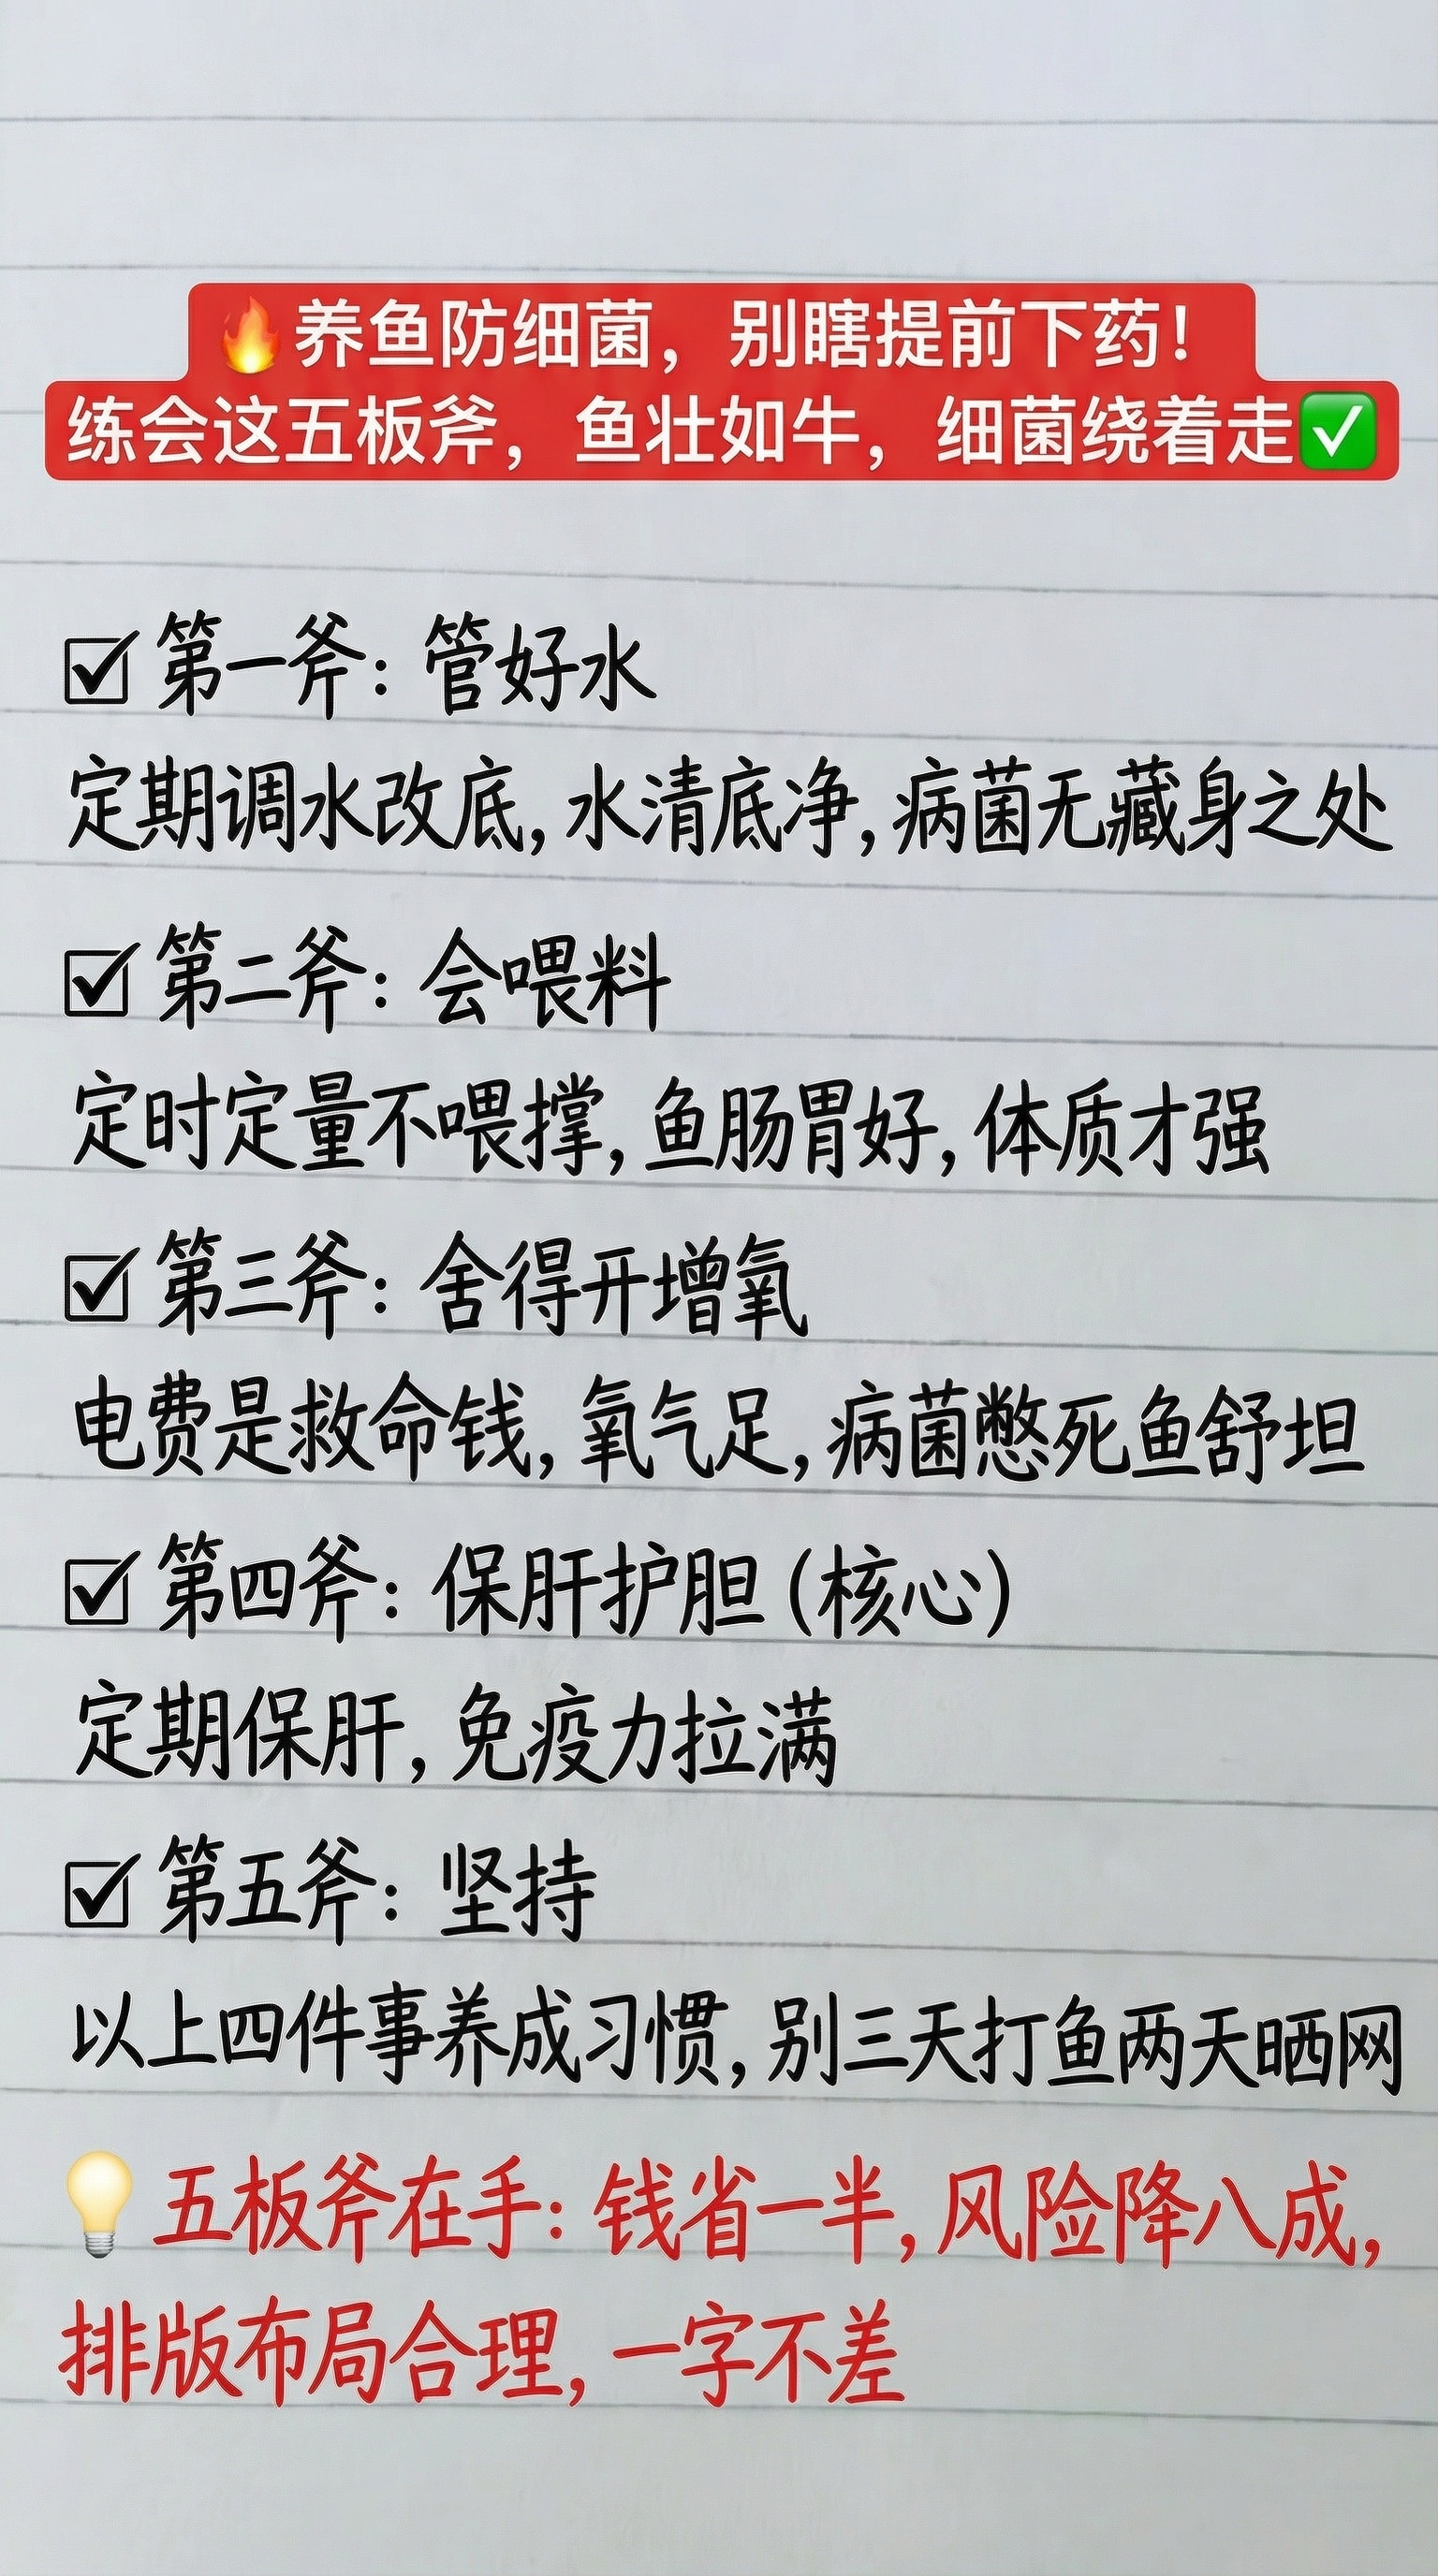 🔥养鱼防细菌，别瞎提前下药！
练会这五板斧，鱼壮如牛，细菌绕着走✅
☑第一斧：管好水
定期调水改底，水清底净，病菌无藏身之处
☑第二斧：会喂料
定时定量不喂撑，鱼肠胃好，体质才强
☑第三斧：舍得开增氧
电费是救命钱，氧气足，病菌憋死鱼舒坦
☑第四斧：保肝护胆（核心）
定期保肝，免疫力拉满
☑第五斧：坚持
以上四件事养成习惯，别三天打鱼两天晒网
💡五板斧在手：钱省一半，风险降八成，
排版布局合理，一字不差